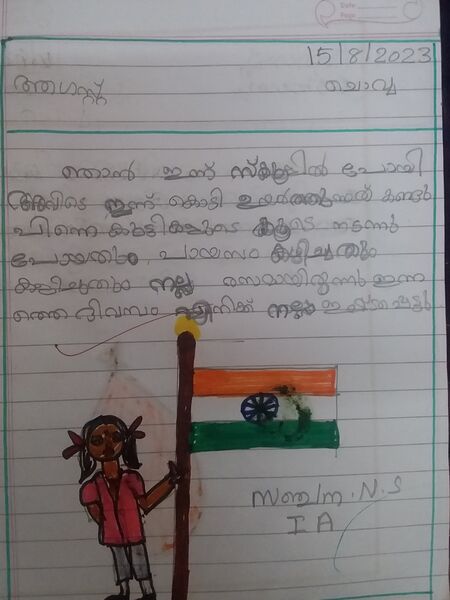 Date:
Page:
15/8/2023
ആഗസ്റ്റ് ചൊവ്വ
ഞാൻ ഇന്ന് സ്കൂളിൽ പോയി
അവിടെ ഇന്ന് കൊടി ഉയർത്തുന്നത് കണ്ടു
പിന്നെ കുട്ടികളുടെ കൂടെ നടന്നു
പോയതും, പായസം കുടിച്ചതും
കളിച്ചതും നല്ല രസമായിരുന്നു ഇന്ന
ത്തെ ദിവസം എനിക്ക് നല്ല ഇഷ്ടപ്പെട്ടു
സഞ്ചന. N. S
I A